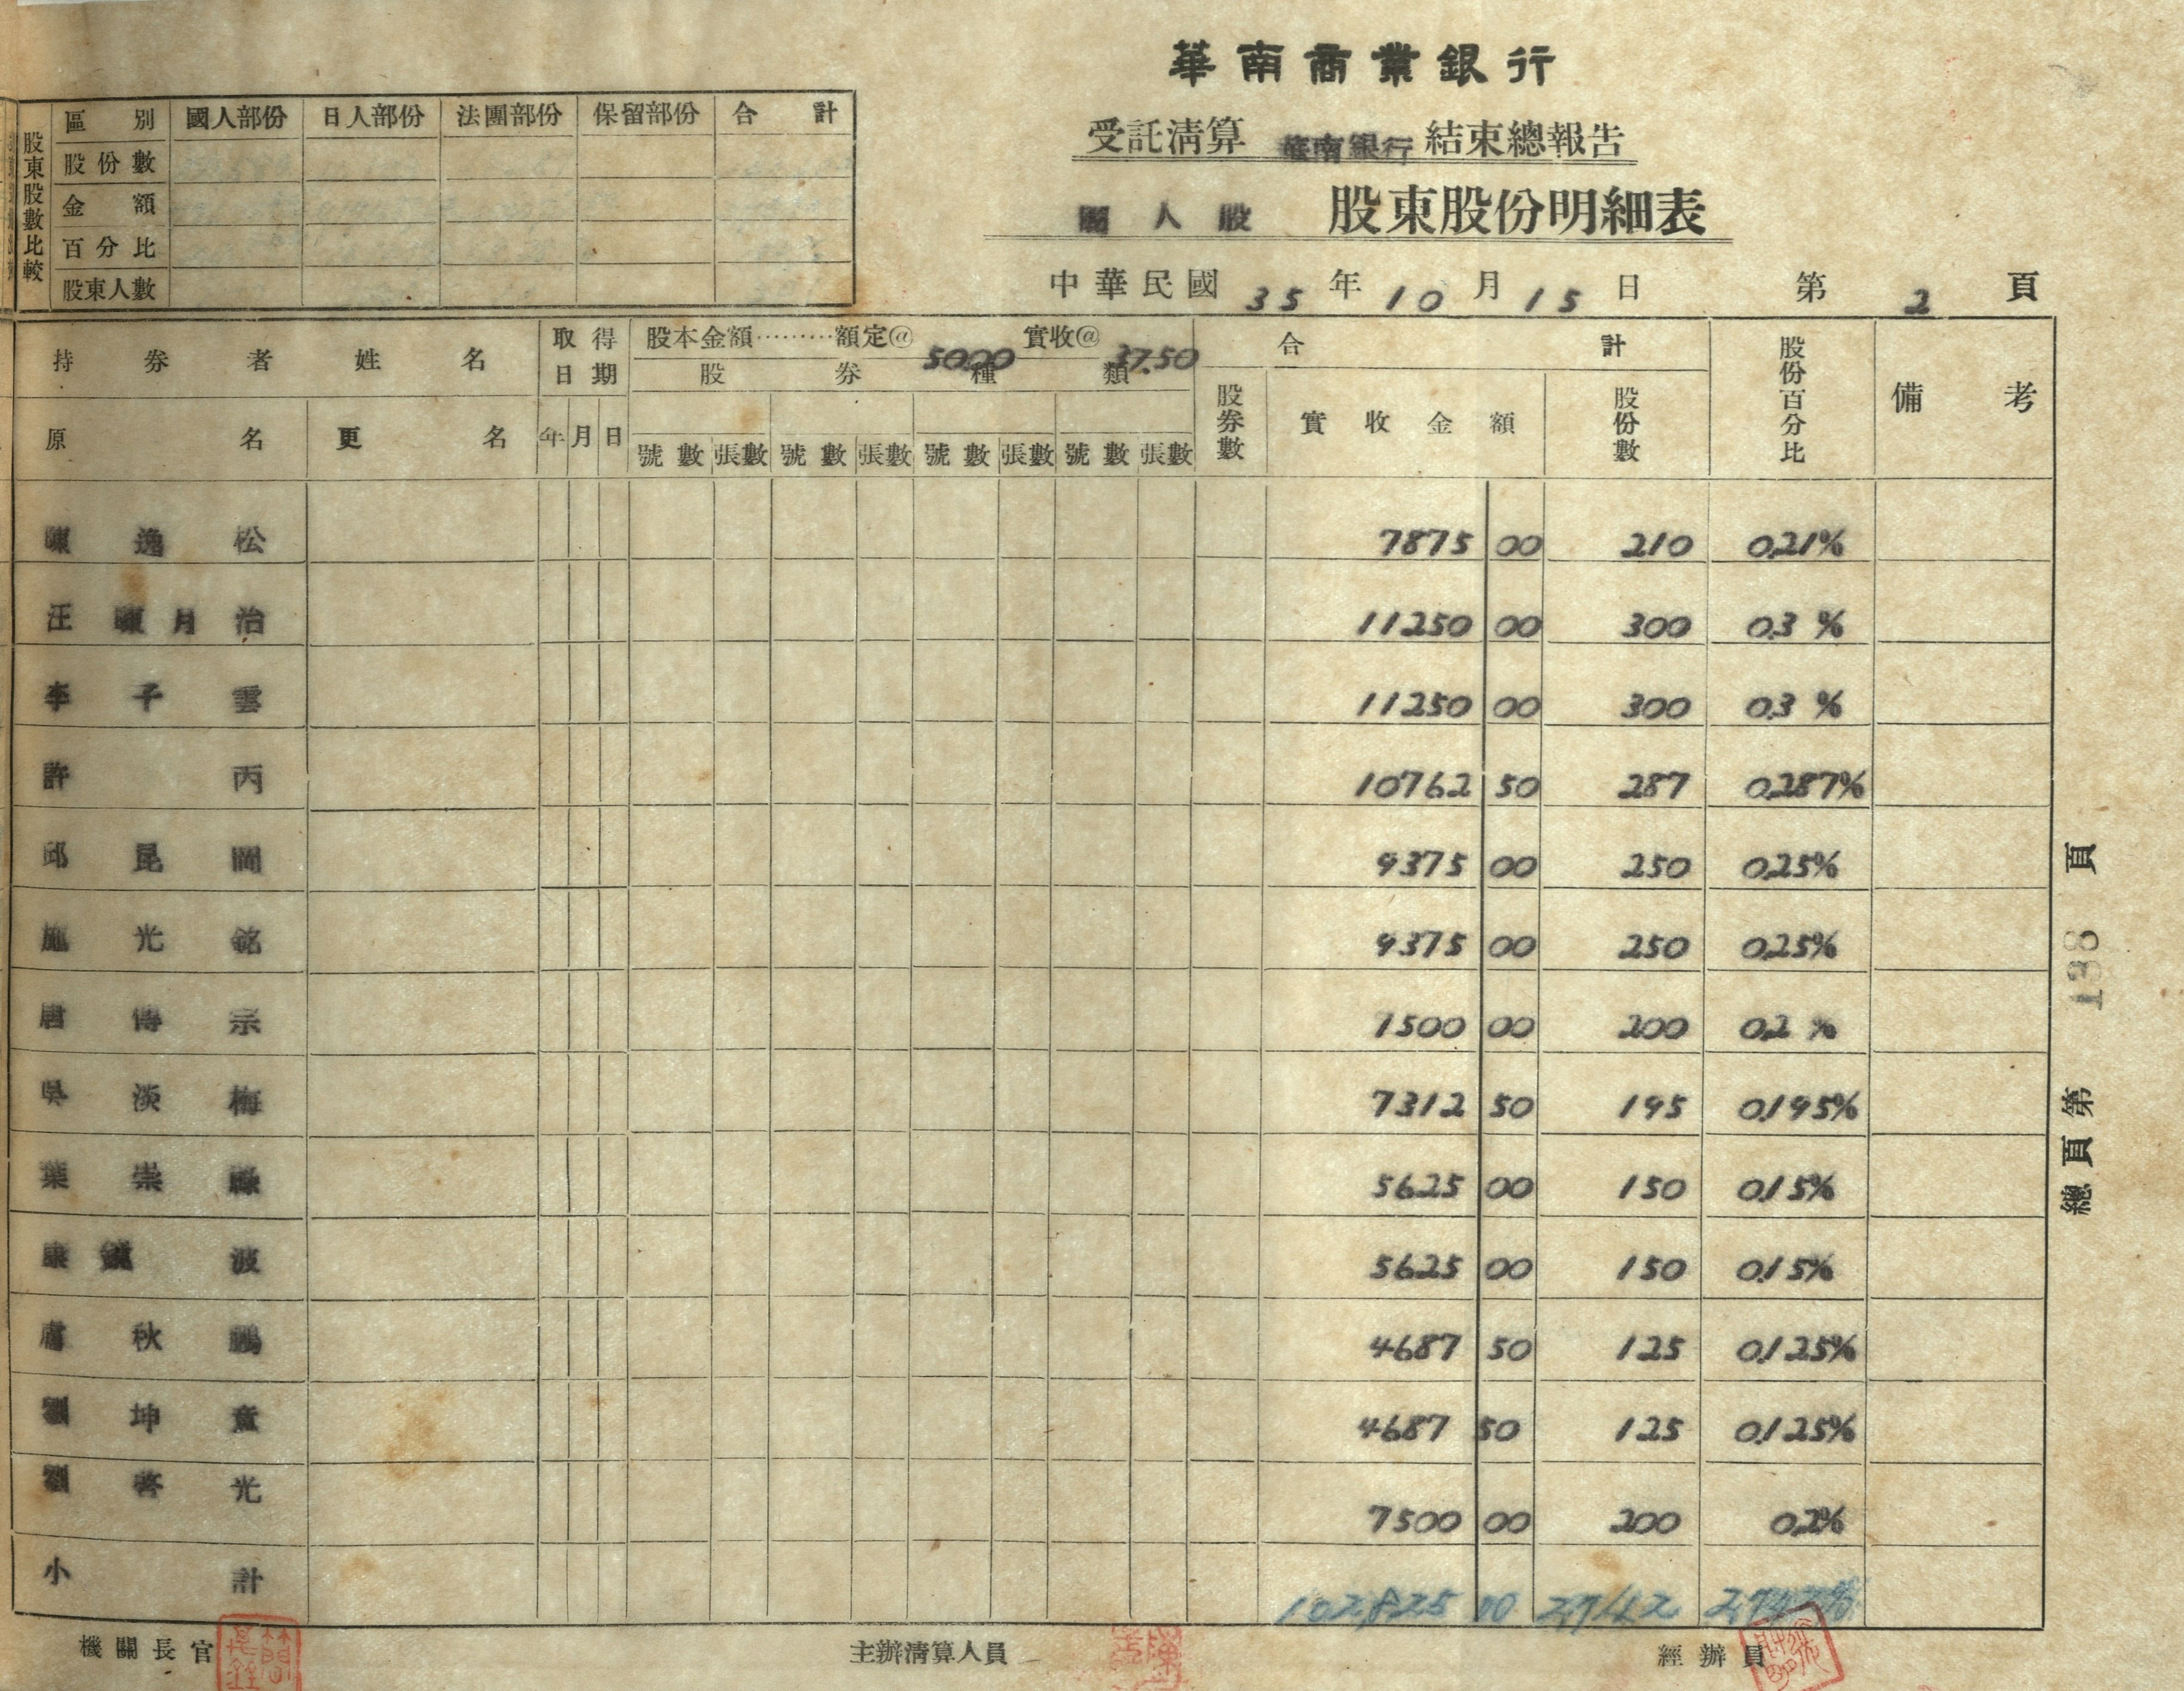 華南商業銀行
受託清算 華南銀行 結束總報告
國人股 股東股份明細表
中華民國 35 年 10 月 15 日 第 2 頁
股東股數比較
區別 國人部份 日人部份 法團部份 保留部份 合計
股份數
金額
百分比
股東人數
持券者姓名 取得日期 股本金額·········額定@ 5000 實收@ 37.50 合計 股份百分比 備考
股券種類
原名 更名 年 月 日 號數 張數 號數 張數 號數 張數 號數 張數 股券數 實收金額 股份數
陳逸松 7875 00 210 0.21%
汪陳月治 11250 00 300 0.3 %
李子雲 11250 00 300 0.3 %
許丙 10762 50 287 0.287%
邱昆 9375 00 250 0.25%
施光銘 9375 00 250 0.25%
唐傳宗 1500 00 200 0.2 %
吳淡梅 7312 50 195 0.195%
葉崇 5625 00 150 0.15%
康 波 5625 00 150 0.15%
盧秋 4687 50 125 0.125%
劉坤 4687 50 125 0.125%
劉啓光 7500 00 200 0.2%
小計 102,825 00 2,742 2,742%
機關長官 主辦清算人員 經辦員
總頁第 138 頁